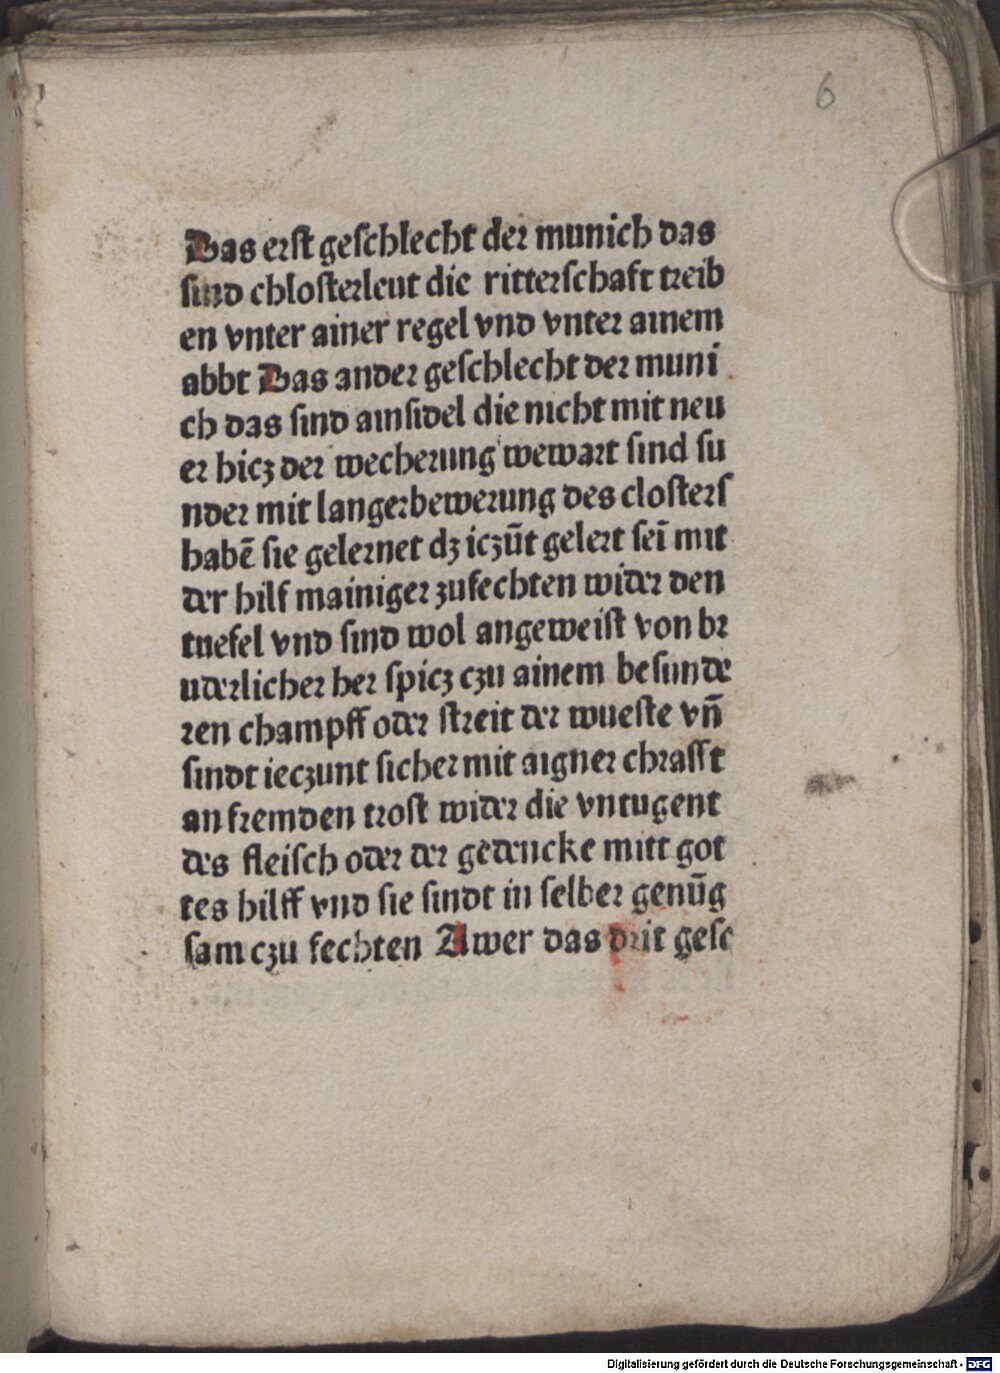 6
Das erſt geſchlecht der munich das
ſind chloſterleut die ritterſchaft treib
en vnter ainer regel vnd vnter ainem
abbt Das ander geſchlecht der muni
ch das ſind ainſidel die nicht mit neu
er hicz der wecherung wewart ſind ſu
nder mit langer bewerung des cloſterſ
habē ſie gelernet dz iczūt gelert ſeī mit
der hilf mainiger zufechten wider den
tuefel vnd ſind wol angeweiſt von br
uderlicher her ſpicz czu ainem beſunde
ren champff oder ſtreit der wueſte vn̄
ſindt ieczunt ſicher mit aigner chrafft
an fremden troſt wider die vntugent
des fleiſch oder der gedencke mitt got
tes hilff vnd ſie ſindt in ſelber genūg
ſam czu fechten Awer das drit geſc
Digitalisierung gefördert durch die Deutsche Forschungsgemeinschaft - DFG